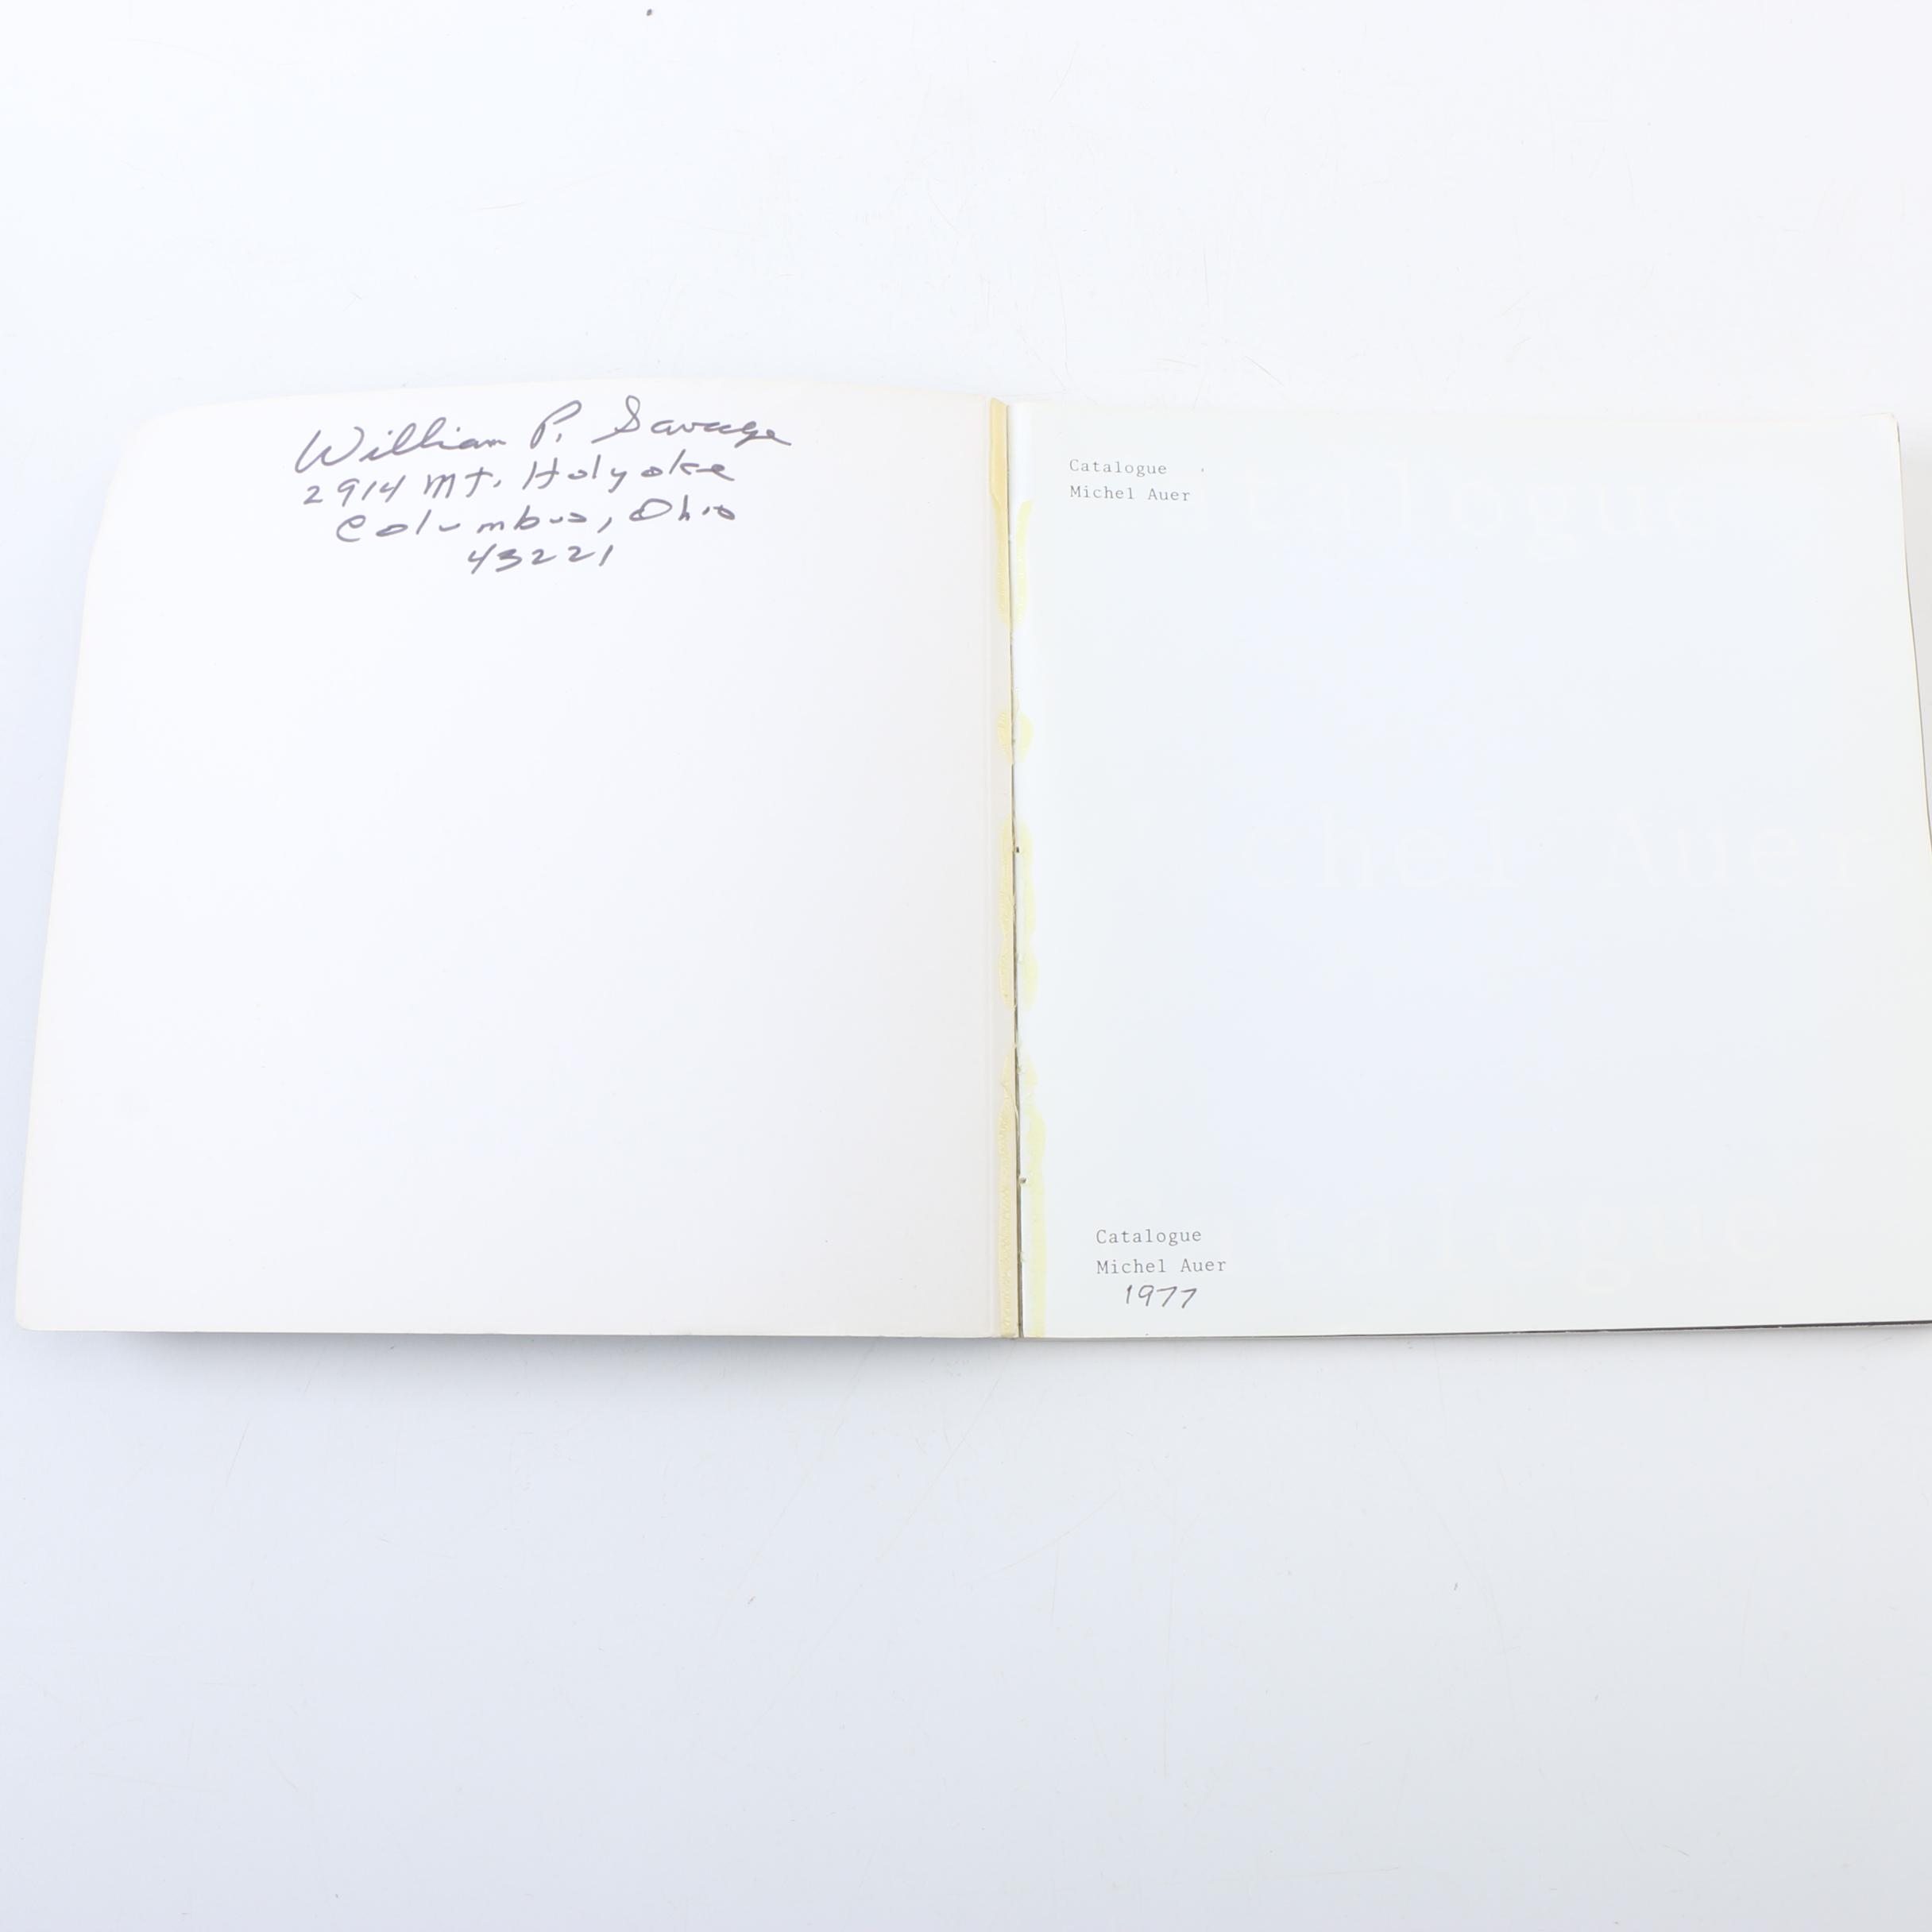 William P. Savage
2914 Mt. Holyoke
Columbus, Ohio
43221
Catalogue
Michel Auer
Catalogue
Michel Auer
1977